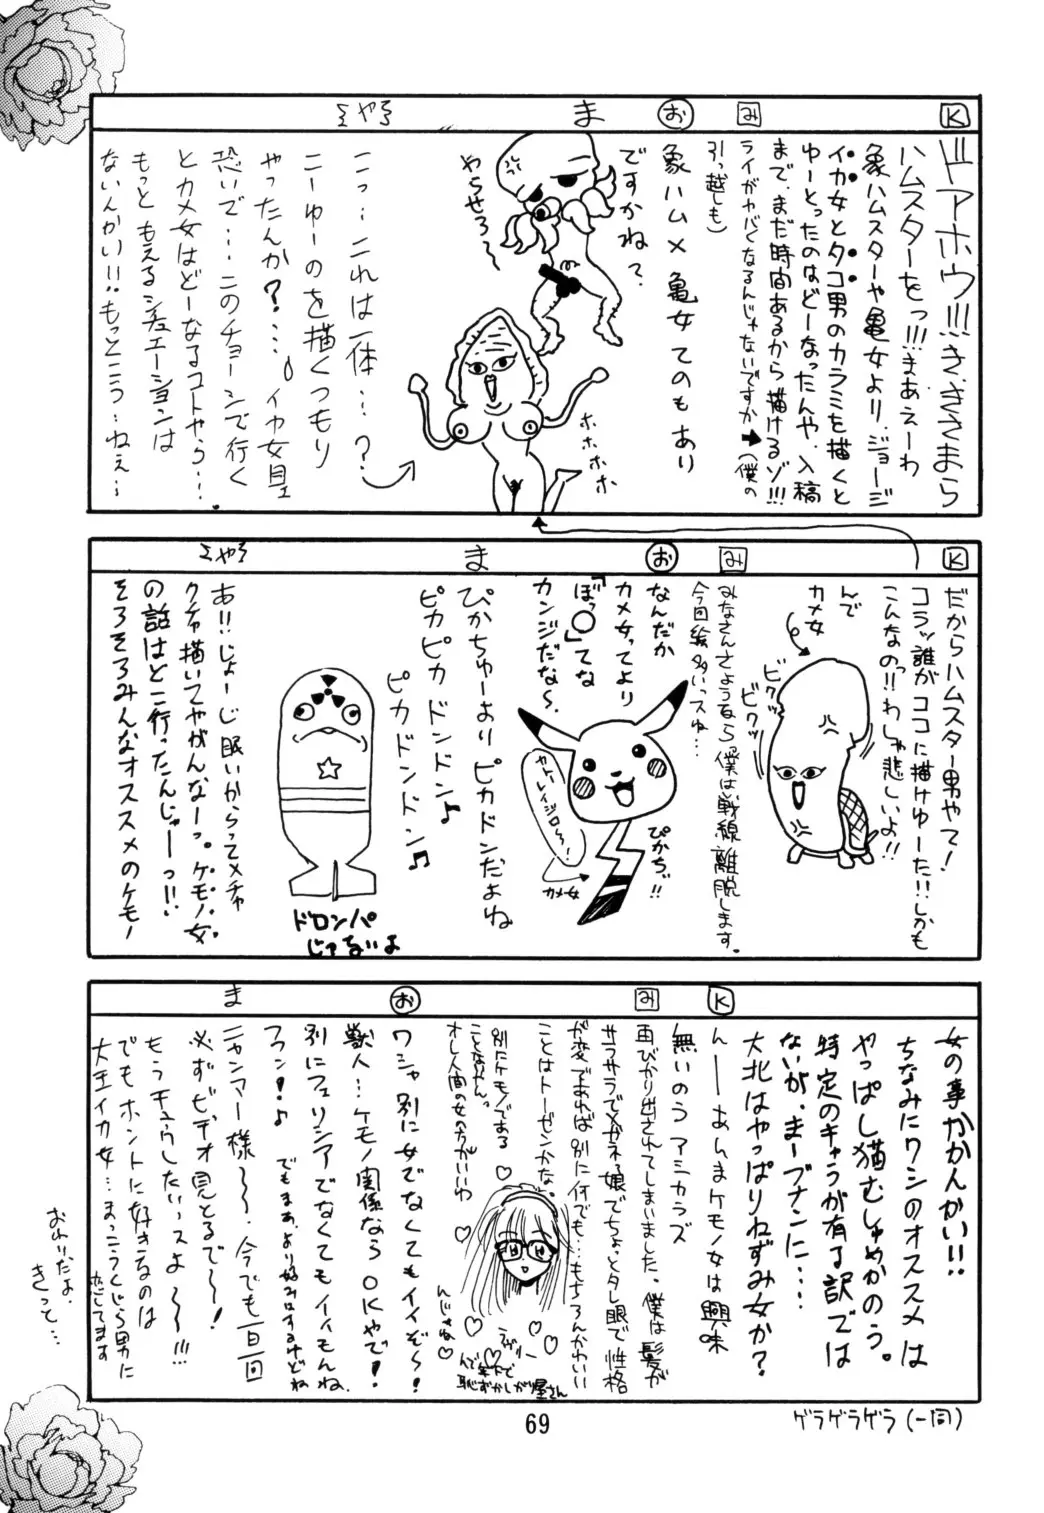 K
ドアホウ!!!きさまら
ハムスターをっ!!!まあえーわ
象ハムスターや亀女より、ジョージ
イカ女とタコ男のカラミを描くと
ゆーとったのはどーなったんや、入稿
まで、まだ時間あるから描けるゾ!!!
み
ライがヤバくなるんじゃないですか➡(僕の
引っ越しも)
お
象ハム×亀女てのもあり
ですかね?
やらせろ〜
ホホホホ
ま
こっ…これは一体…?
こーゆーのを描くつもり
やったんか?…。イカ女見
恐いで…このチョーシで行く
とカメ女はどーなるコトやら…。
もっともえるシチュエーションは
ないんかい!!もっとこうっ…ねぇ…
K
だからハムスター男やて!
コラッ誰がココに描けゆーた!!しかも
こんなのっ!!わしゃ悲しいよ!!
んで
カメ女
ビクッ
ビクッ
み
みなさんさようなら僕は戦線離脱します。
今回絵多いっスね…
お
なんだか
カメ女ってより
「ぼっ○」てな
カンジだな〜
ぴかぢぃ!!
カメ女
ま
ぴかちゅーよりピカドンだよね
ピカピカドンドン♪
ピカドンドン♫
ドロンパ
じゃないよ
あ!!じょーじ眠いからってメチャ
クチャ描いてやがんなーっ。ケモノ女
の話はどこ行ったんじゃーっ!!
そろそろみんなオススメのケモノ
女の事かかんかい!!
ちなみにワシのオススメは
やっぱし猫むすめかのう。
特定のキャラが有る訳では
ないが、まーブナンに….
大北はやっぱりねずみ女か?
K
んーーあんまケモノ女は興味
無いのうアシカラズ
み
再びかり出されてしまいました。僕は髪が
サラサラでメガネっ娘でちょっとタレ眼で性格
が変であれば別に何でも…もちろんかわいい
ことはトーゼンかな。
別にケモノである
ことなかれっ
オレ人間の女の方がいいわ
んで年下で
恥ずかしがり屋さん
お
ワシャ別に女でなくてもイイぞ〜!
獣人…ケモノ関係ならOKやで!
別にフェリシアでなくてもイイもんね、
フラン!♪
でもまあ、より好みはするけどね
ま
ニャンマー様〜〜、今でも一日一回
必ずビデオ見とるで〜!
もうチュウしたいっスよ〜〜!!!
でもホントに好きなのは
大王イカ女…まっこうくじら男に
恋してます
おわりだよ、
きっと…
ゲラゲラゲラ(一同)
69